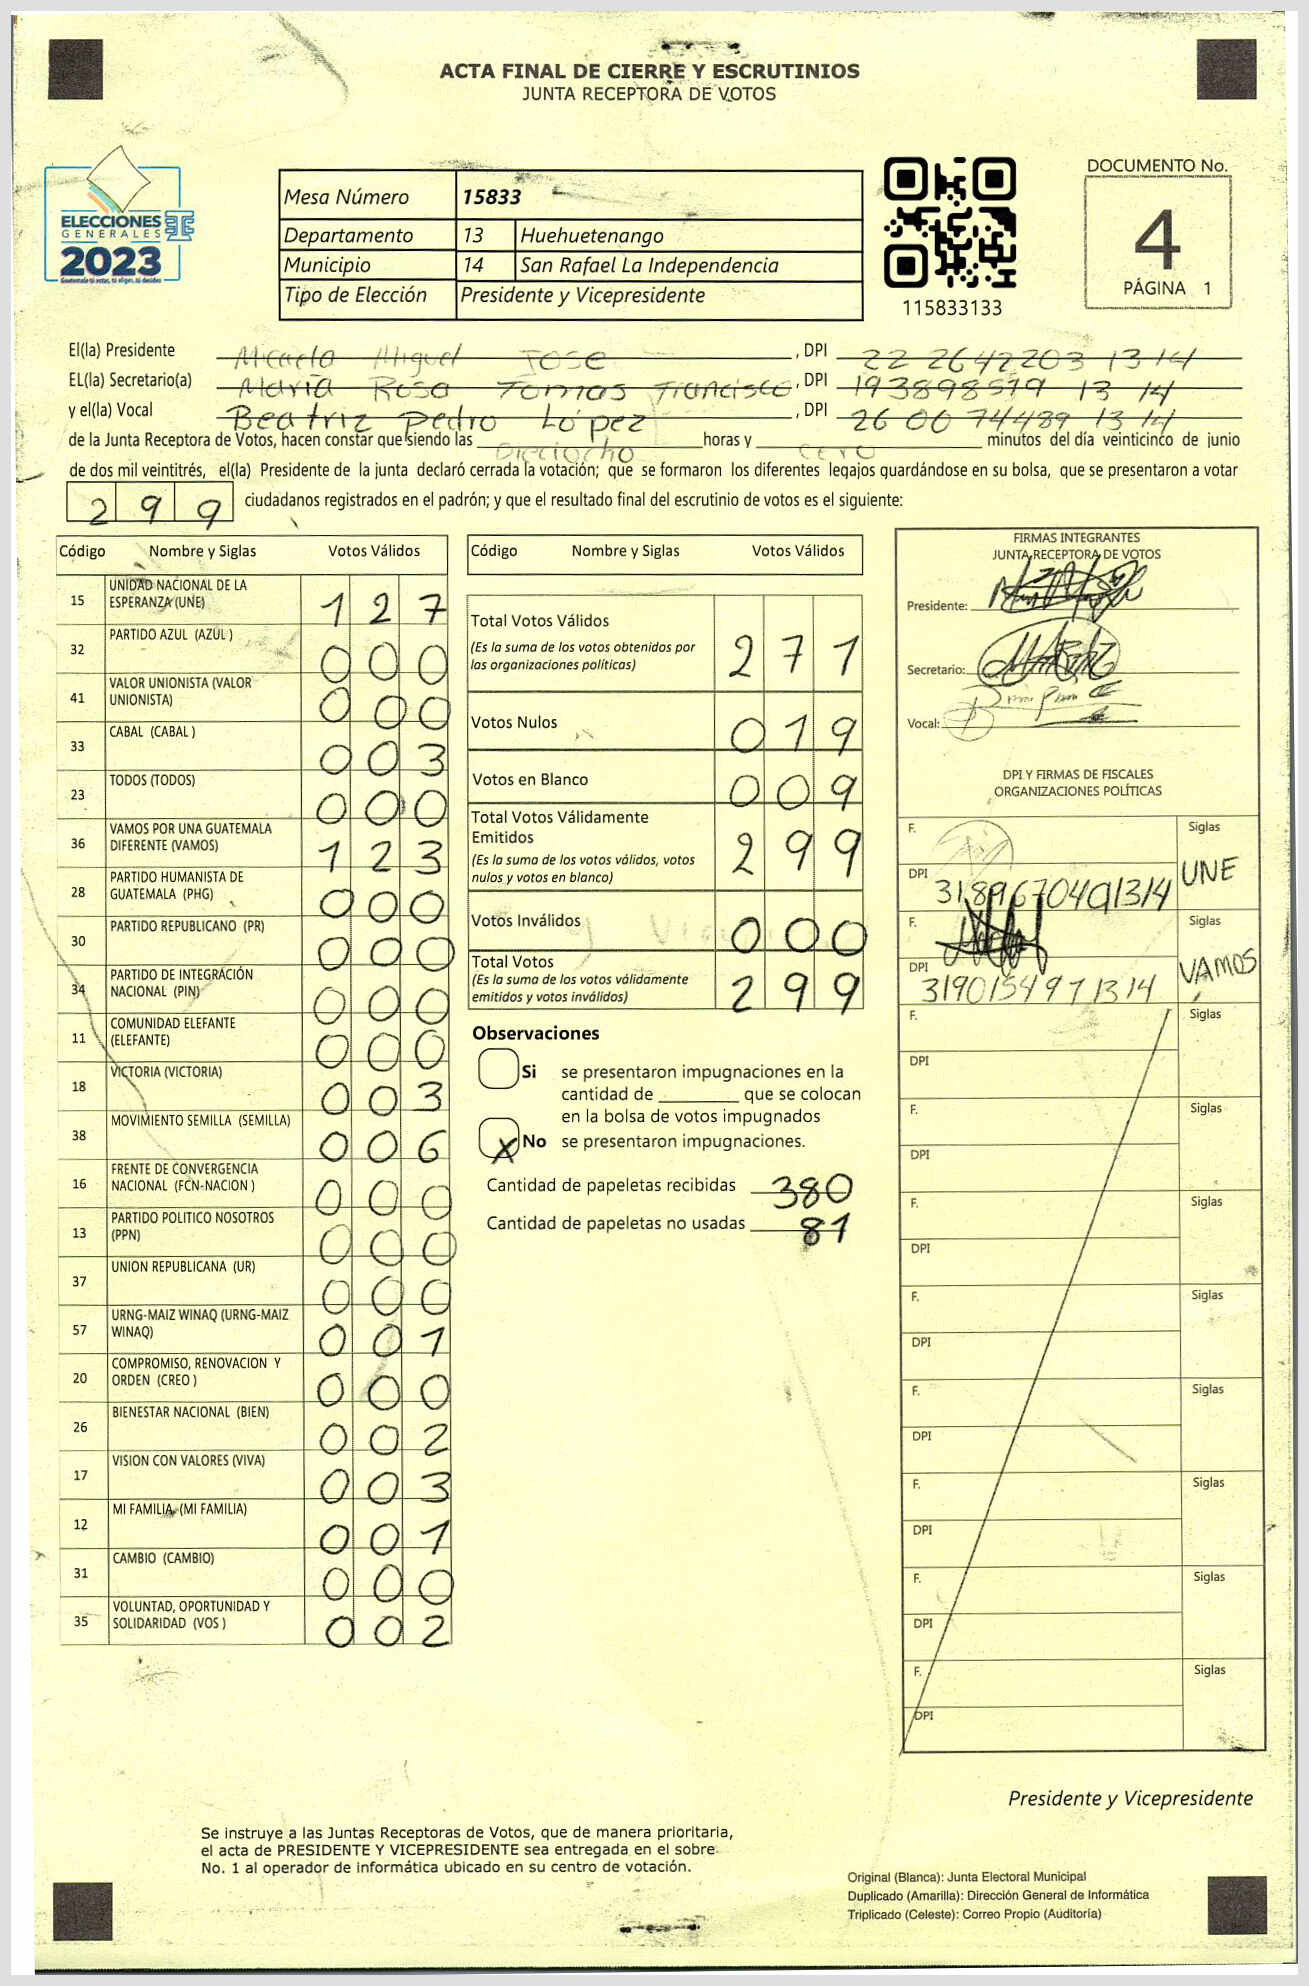 ACTA FINAL DE CIERRE Y ESCRUTINIOS
JUNTA RECEPTORA DE VOTOS
ELECCIONES
GENERALES
2023
Mesa Número 15833
Departamento 13 Huehuetenango
Municipio 14 San Rafael La Independencia
Tipo de Elección Presidente y Vicepresidente
115833133
DOCUMENTO No.
4
PÁGINA 1
El(la) Presidente Micaela Miguel Jose, DPI 22 2642203 13 14
EL(la) Secretario(a) María Rosa Tomas Francisco, DPI 193898579 13 14
y el(la) Vocal Beatriz Pedro López, DPI 26 00 74489 13 14
de la Junta Receptora de Votos, hacen constar que siendo las Dieciocho horas y cero minutos del día veinticinco de junio
de dos mil veintitrés, el(la) Presidente de la junta declaró cerrada la votación; que se formaron los diferentes legajos quardándose en su bolsa, que se presentaron a votar
299 ciudadanos registrados en el padrón; y que el resultado final del escrutinio de votos es el siguiente:
Código Nombre y Siglas Votos Válidos
15 UNIDAD NACIONAL DE LA ESPERANZA (UNE) 127
32 PARTIDO AZUL (AZUL ) 000
41 VALOR UNIONISTA (VALOR UNIONISTA) 000
33 CABAL (CABAL ) 003
23 TODOS (TODOS) 000
36 VAMOS POR UNA GUATEMALA DIFERENTE (VAMOS) 123
28 PARTIDO HUMANISTA DE GUATEMALA (PHG) 000
30 PARTIDO REPUBLICANO (PR) 000
34 PARTIDO DE INTEGRACIÓN NACIONAL (PIN) 000
11 COMUNIDAD ELEFANTE (ELEFANTE) 000
18 VICTORIA (VICTORIA) 003
38 MOVIMIENTO SEMILLA (SEMILLA) 006
16 FRENTE DE CONVERGENCIA NACIONAL (FCN-NACION ) 000
13 PARTIDO POLITICO NOSOTROS (PPN) 000
37 UNION REPUBLICANA (UR) 000
57 URNG-MAIZ WINAQ (URNG-MAIZ WINAQ) 001
20 COMPROMISO, RENOVACION Y ORDEN (CREO ) 000
26 BIENESTAR NACIONAL (BIEN) 002
17 VISION CON VALORES (VIVA) 003
12 MI FAMILIA (MI FAMILIA) 001
31 CAMBIO (CAMBIO) 000
35 VOLUNTAD, OPORTUNIDAD Y SOLIDARIDAD (VOS ) 002
Código Nombre y Siglas Votos Válidos
Total Votos Válidos 271
(Es la suma de los votos obtenidos por
las organizaciones políticas)
Votos Nulos 019
Votos en Blanco 009
Total Votos Válidamente
Emitidos 299
(Es la suma de los votos válidos, votos
nulos y votos en blanco)
Votos Inválidos 000
Total Votos 299
(Es la suma de los votos válidamente
emitidos y votos inválidos)
Observaciones
Si se presentaron impugnaciones en la
cantidad de ________ que se colocan
en la bolsa de votos impugnados
X No se presentaron impugnaciones.
Cantidad de papeletas recibidas 380
Cantidad de papeletas no usadas 81
FIRMAS INTEGRANTES
JUNTA RECEPTORA DE VOTOS
Presidente:
Secretario:
Vocal:
DPI Y FIRMAS DE FISCALES
ORGANIZACIONES POLÍTICAS
F. Siglas
DPI 3189670491314 UNE
F. Siglas
DPI 3190154971314 VAMOS
F. Siglas
DPI
F. Siglas
DPI
F. Siglas
DPI
F. Siglas
DPI
F. Siglas
DPI
F. Siglas
DPI
F. Siglas
DPI
F. Siglas
DPI
Presidente y Vicepresidente
Se instruye a las Juntas Receptoras de Votos, que de manera prioritaria,
el acta de PRESIDENTE Y VICEPRESIDENTE sea entregada en el sobre
No. 1 al operador de informática ubicado en su centro de votación.
Original (Blanca): Junta Electoral Municipal
Duplicado (Amarilla): Dirección General de Informática
Triplicado (Celeste): Correo Propio (Auditoría)